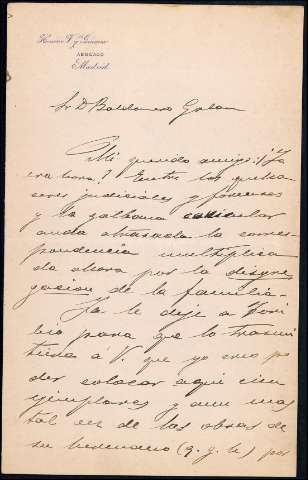 ABOGADO
Madrid
Sr D Baldomero Galan
Mi querido amigo: ¡Ya
era hora! Entre los queha
ceres judiciales y forenses
y la galbana canicular
anda atrasada la corres
pondencia multiplica
da ahora por la disgre
gacion de la familia.
Ya le dije a Tori
bio para que lo trasmi
tiera á V. que yo creo po
der colocar aqui cien
ejemplares y aun mas
tal vez de las obras de
su hermano (q. g. h.) por